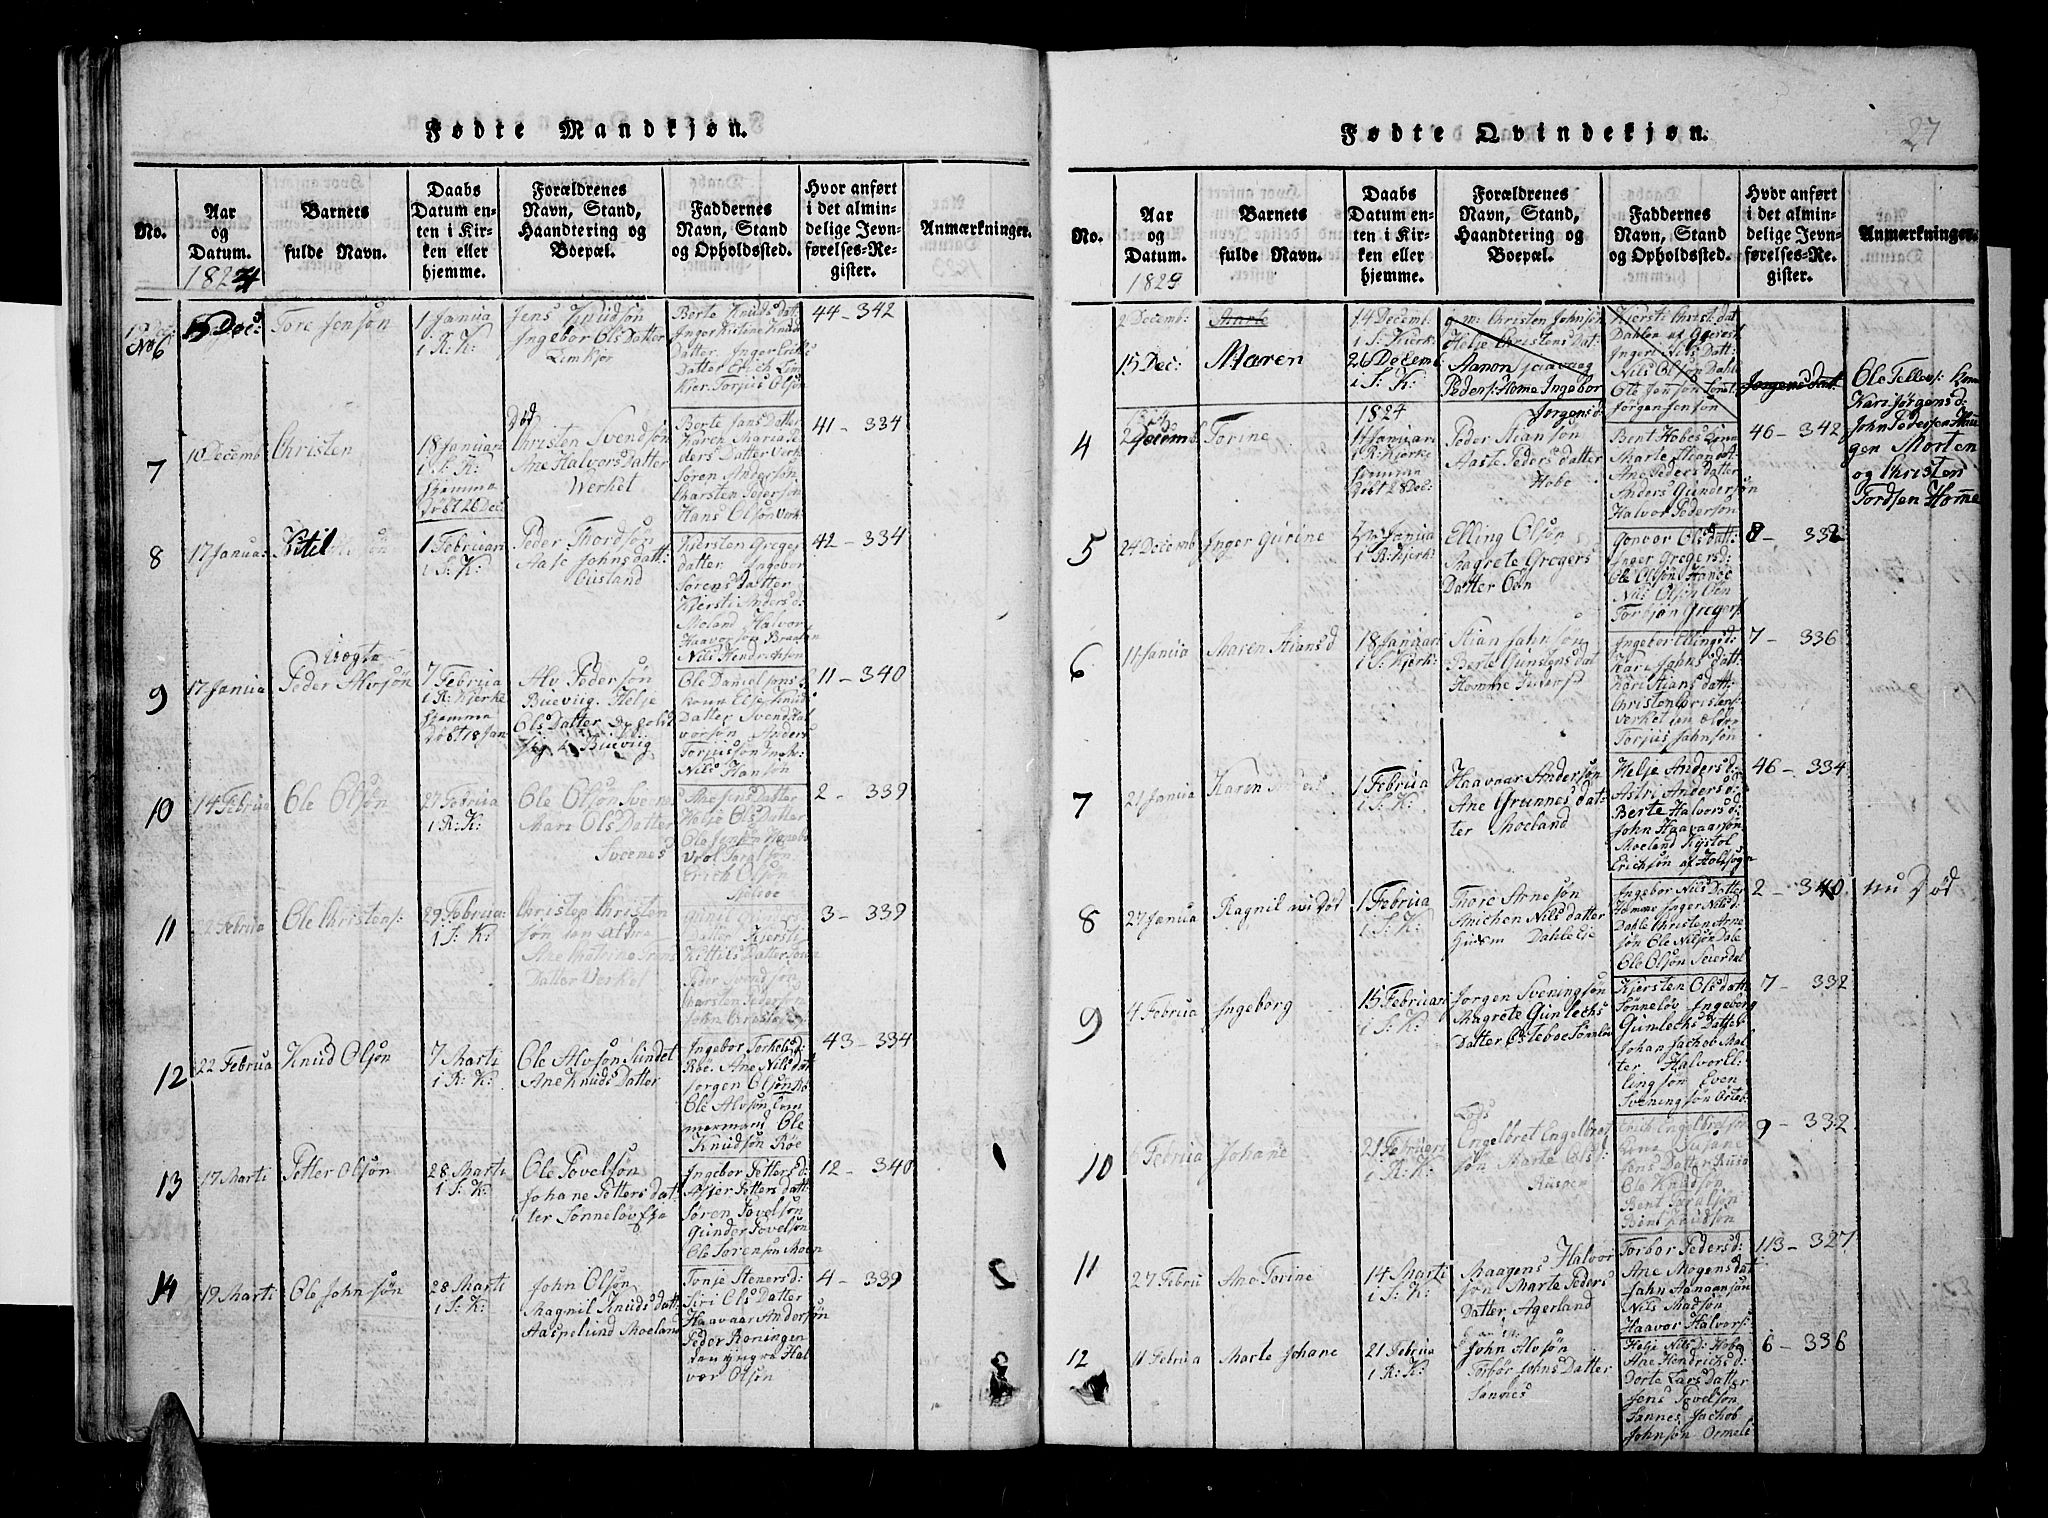 Fødte Mandkjøn.
No.
Aar
og
Datum.
1824
Barnets
fulde Navn.
Daabs
Datum en-
ten i Kir-
ken eller
hjemme.
Forældrenes
Navn, Stand,
Haandtering og
Boepæl.
Faddernes
Navn, Stand
og Opholdssted.
Hvor anført
i det almin-
delige Jevn-
førelses-Re-
gister.
Anmærkninger.
6
Dec:
Tore Jensøn
1 Janua
i R: K:
Jens Knudsøn
Ingebor Ols Datter
Limkjør
Berte Knuds dat
Inger Kirstine Knud
Datter Inger Eriks
Datter Erich Lim
Kier Torjus Olsøn
44 - 342
7
10 Decemb
Christen
18 Januari
i S: K:
hjemma
døbt 26 Dec:
Død
Christen Svendsøn
Ane Halvors Datter
Werket
Berte Jans Datter
Karen Maria Pe
ders Datter Verk
Søren Andersøn
Karsten Pejersøn
Hans Olsøn Verk
41 - 334
8
17 Janua:
Kitil
1 Februari
i S: K:
Peder Thordsøn
Aase Johns datt:
Øusland
Kjersten Greger
datter Ingebor
Sørens Datter
Kjersti Anders d:
Moland Halvor
Haavorsøn Braaten
Nils Hendrichsøn
42 - 334
9
17 Janua
Vogto
Peder Alvsøn
7 Februa
i R: Kjerke
hjemma
døbt 18 Jan
Alv Pedersøn
Buevug. Helje
Ols Datter
Buevug
Ole Danielsøns
Koun Elje Knud
Datter Svend Hal
vorsøn Anders
Torjussøn
Nils Hansøn
11 - 340
10
14 Februa
Ole Olsøn
27 Februa
i R: K:
Ole Olsøn Svenes
Mari Ols Datter
Svenes
Ane Jens Datter
Helje Ols Datter
Ole Jensøn
Wrol Taralsøn
Erich Olsøn
2 - 339
11
22 Februa
Ole Christens:
29 Februa:
i S: K:
Christen Christen
søn den eldre
Ane Chatrina Jens
Datter Verket
Datter Kjersti
Kittils Datter
Peder Svendsøn
Charsten Pedersøn
John Christens
3 - 339
12
22 Februa
Knud Olsøn
7 Marti
i R: K:
Ole Alvsøn Sundet
Ane Knuds Datter
Ingebor Torkels d:
Røe. Ane Nils dat
Jorgen Olsøn Rø
Ole Alvsøn Com
mermand Ole
Knudsøn Røe
43 - 334
13
17 Marti
Petter Olsøn
28 Marti
i S: K:
Ole Povelsøn
Johane Petters dat
ter Sønneløv
Ingebor Petters d:
Asjer Petters datt
Søren Povelsøn
Gunder Povelsøn
Ole Sørensøn Moen
12 - 340
14
19 Marti
Ole Johnsøn
28 Marti
i S: K:
John Olsøn
Magnil Knuds datt
Aaspelund Moeland
Tonje Steners d:
Siri Ols Datter
Haavaar Andersøn
Peder Roningen
den yngra Hal
vor Olsøn
4 - 339
1
2
3
Fødte Qvindekjøn.
27
No.
Aar
og
Datum.
182
Barnets
fulde Navn.
Daabs
Datum en-
ten i Kir-
ken eller
hjemme.
Forældrenes
Navn, Stand,
Haandtering og
Boepæl.
Faddernes
Navn, Stand
og Opholdssted.
Hvor anført
i det almin-
delige Jevn-
førelses-Re-
gister.
Anmærkninger.
2 Decemb:
Marte
14 Decem:
i S: Kjerk:
g. m: Christen Johnsøn
Helje Christens Dat:
Aanon
Kjersti Christ: dat
Dahlen
Ingert Nils Datt:
Nils Olsøn Dahl
Ole Jensøn
Jørgen Jensøn
15 Dec:
Maren
26 Decemb
i S: K:
Peders: Home Ingebor
Jørgens d:
Jørgens Dat:
Ole Tellevs:
Kari Jørgens d:
John Pedersen Hau
gen Morten
og Christen
Tordsen Homme
4
Decemb
Torine
1824
11 Januari
i R: Kjerke
hjemma
døbt 28 Dec:
Peder Stiansøn
Aaste Peders datter
Hobe
Bent Hobes
Marte Stians d:
Ane Peders Datter
Anders Gundersøn
Halvor Pedersøn
46 - 342
5
24 Decemb
Inger Gurine
Janua
i R: Kjerk:
Elling Olsøn
Magrete Gregers
Datter Øen
Gonvor Ols datt:
Inger Gregers d:
Ole Olsøn Hanøe
Nils Olsøn Øen
Torbjøn Gregers:
8 - 332
6
11 Janua
Maren Stians d
18 Januari
i S: Kjerk:
Stian Jahnsøn
Berte Gunstens dat
Homme
Ingebor Ellings d:
Kare Jahns Datt:
Kari Stians datt:
Christen Cristens:
Verket den eldre
Torjus Jahnsøn
7 - 336
7
21 Janua
Karen
1 Februa
i S: K:
Haavaar Andersøn
Ane Grunnes dat:
ter Moeland
Helje Anders d:
Astri Anders d:
Berte Halvors d:
John Haavaarsøn
Moeland Kjstol
Erichsøn af Holtsogn
46 - 334
8
27 Janua
Ragnil nu Død
1 Februa
i S: K:
Thore Arnesøn
Anichen Nils datter
Dahle Eje
Ingebor Nils Datter
Homme Inger Nils d:
Dahle Christen Arne
søn Ole Nilsøn Dale
Ole Olsøn Seierdal
2 - 340
nu Død
9
4 Februa
Ingeborg
15 Februari
i S: K:
Jørgen Sveningsøn
Magrete Gunlechs
Datter Østeboe Sønneløv
Kjersten Ols datt:
Sønneløv Ingeberg
Gunlechs Datter
Johan Jachob Mal
ter Halvor El-
lingsøn Even
Sveningsøn Østeb
7 - 332
10
Februa
Johane
21 Februari
i R: K:
Lods
Engelbret Engelbret
søn Marte Ols:
Risøen
Erich Engelbretsøn
Susane
Jens Datter
Ole Knudsøn
Bent Taralsøn
Bent Knudsøn
9 - 332
11
27 Febru
Ane Torine
14 Marti
i S: K:
Maagens Halvor
søn Marte Peders
Datter Agerland
Torbor Peders d:
Ane Mogens dat
Jahn Aanaansøn
Nils Madsøn
Haavor Halvors:
113 - 327
12
11 Februa
Marte Johane
21 Februa
i R: K:
John Alvsøn
Torbør Johns Datter
Sannes
Helje Nils D: Hobe
Ane Hendrichs d:
Dorte Lars Datter
Jens Povelsøn
Sannes Jachob
Johnsøn Ormele
6 - 336